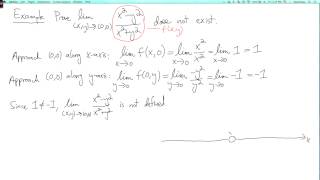 Example Prove lim (x,y)→(0,0) x²-y² / x²+y² does not exist.
f(x,y)
Approach (0,0) along x-axis: lim x→0 f(x,0) = lim x→0 x²/x² = lim x→0 1 = 1
Approach (0,0) along y-axis: lim y→0 f(0,y) = lim y→0 -y²/y² = lim y→0 -1 = -1
Since 1≠-1, lim (x,y)→(0,0) x²-y² / x²+y² is not defined.
x